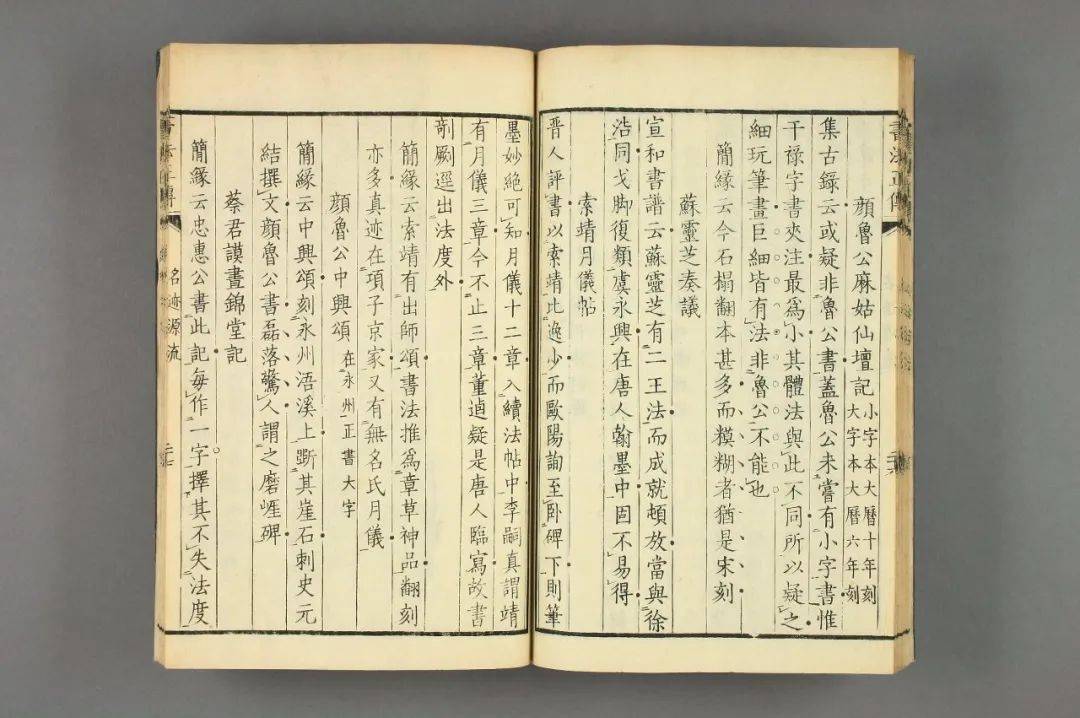 顔魯公麻姑仙壇記 小字本大曆十年刻 大字本大曆六年刻
集古錄云或疑非魯公書蓋魯公未嘗有小字書惟
干祿字書夾注最爲小其體法與此不同所以疑之
細玩筆畫巨細皆有法非魯公不能也
簡緣云今石搨翻本甚多而糢糊者猶是宋刻
蘇靈芝奏議
宣和書譜云蘇靈芝有二王法而成就頓放當與徐
浩同戈脚復類虞永興在唐人翰墨中固不易得
索靖月儀帖
晉人評書以索靖比逸少而歐陽詢至卧碑下則筆
墨妙絶可知月儀十二章入續法帖中李嗣真謂靖
有月儀三章今不止三章董逌疑是唐人臨寫故書
剞劂逕出法度外
簡緣云索靖有出師頌書法推爲章草神品翻刻
亦多真迹在項子京家又有無名氏月儀
顔魯公中興頌 在永州正書大字
簡緣云中興頌刻永州浯溪上斲其崖石刺史元
結撰文顔魯公書磊落驚人謂之磨崖碑
蔡君謨晝錦堂記
簡緣云忠惠公書此記每作一字擇其不失法度
書法正傳
名迹源流